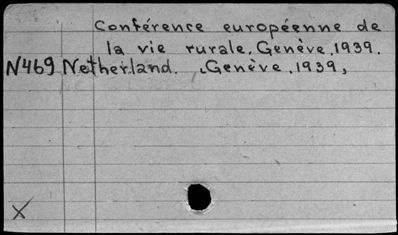 Conférence européenne de
la vie rurale, Genève, 1939.
N469 Netherland. Genève, 1939,
X